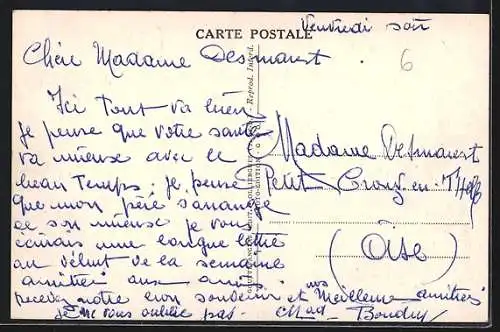 CARTE POSTALE
Vendredi soir
6
Chère Madame Desmarest
Ici Tout va bien
je pense que votre santé
va mieux avec le
beau Temps; je pense
que mon père
ce son mieux je vous
écrirais une longue lettre
au début de la semaine
amitiés aux amis
recevez notre bon souvenir et nos Meilleures amitiés
je ne vous oublie pas - Mad. Boudry
Madame Desmarest
Petit Crouy-en-Thelle
(Oise)
Reprod. Interd.